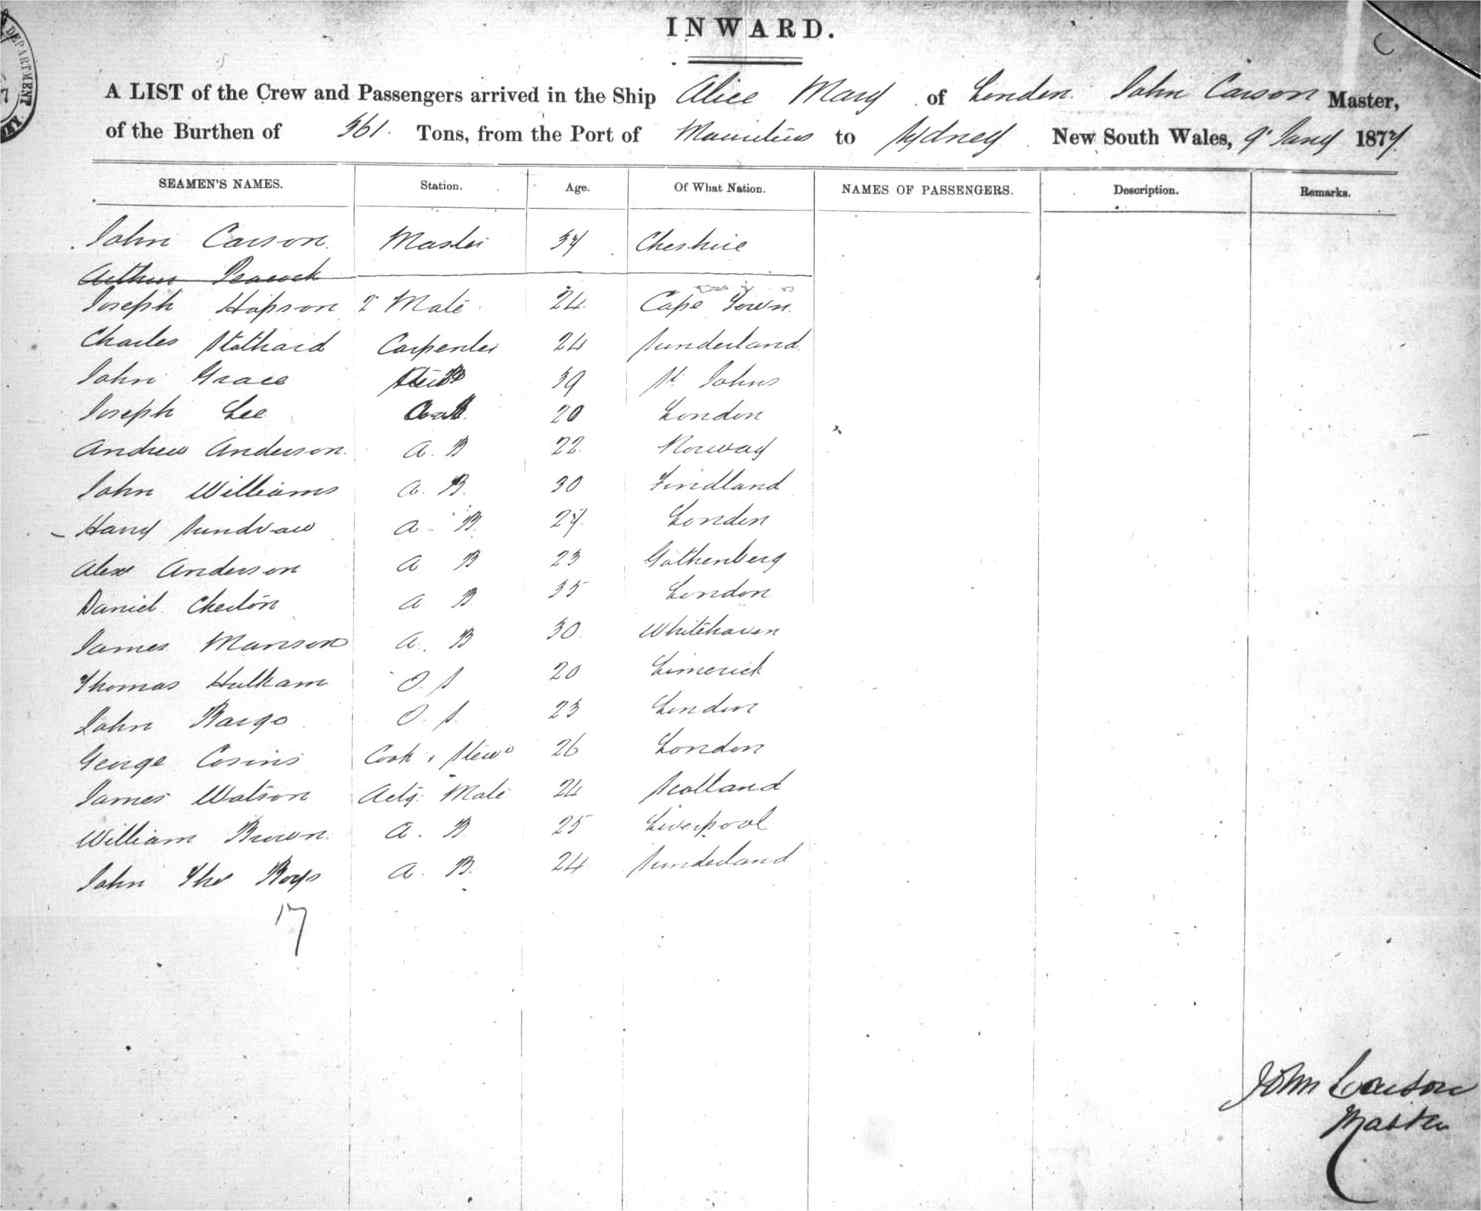 INWARD.
C
DEPARTMENT
A LIST of the Crew and Passengers arrived in the Ship Alice Mary of London John Carson Master,
of the Burthen of 361. Tons, from the Port of Mauritius to Sydney New South Wales, 9 Jany 1877
SEAMEN'S NAMES. Station. Age. Of What Nation. NAMES OF PASSENGERS. Description. Remarks.
John Carson Master 37 Cheshire
Arthur Peacock
Joseph Hopson 2 Mate 24 Cape Town
Charles Stothard Carpenter 24 Sunderland
John Grace 39 St Johns
Joseph Lee Cook 20 London
Andrew Anderson A. B 22 Norway
John Williams A. B. 30 Findland
Harry A. B. 27 London
Alex Anderson A B 23 Gothenberg
Daniel A B 35 London
James Manson A. B 30 Whitehaven
Thomas O. S 20 Limerick
John O. S. 23 London
George Cosins Cook & Stewd 26 London
James Watson Actg. Mate 24 Scotland
William Brown A. B 25 Liverpool
John Thos Boys A. B. 24 Sunderland
17
John Carson
Master